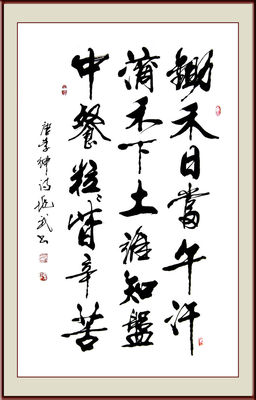 鋤禾日當午汗
滴禾下土誰知盤
中餐粒〻皆辛苦
唐李紳詩